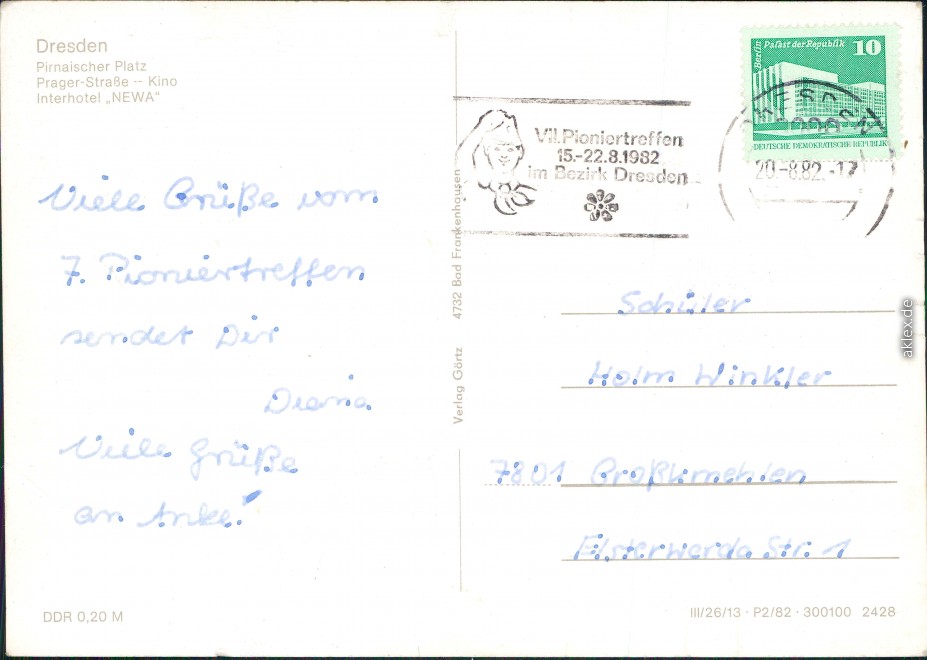 Dresden
Pirnaischer Platz
Prager-Straße -- Kino
Interhotel „NEWA"
Viele Grüße vom
7. Pioniertreffen
sendet Dir
Diana
Viele Grüße
an Anke!
DDR 0,20 M
Verlag Görtz 4732 Bad Frankenhausen
VII. Pioniertreffen
15.-22.8.1982
im Bezirk Dresden
DRESDEN
20.-8.82.-17
Berlin Palast der Republik 10
DEUTSCHE DEMOKRATISCHE REPUBLIK
Schüler
Holm Winkler
7801 Großkmehlen
Elsterwerda Str. 1
III/26/13 · P2/82 · 300100 2428
aklex.de